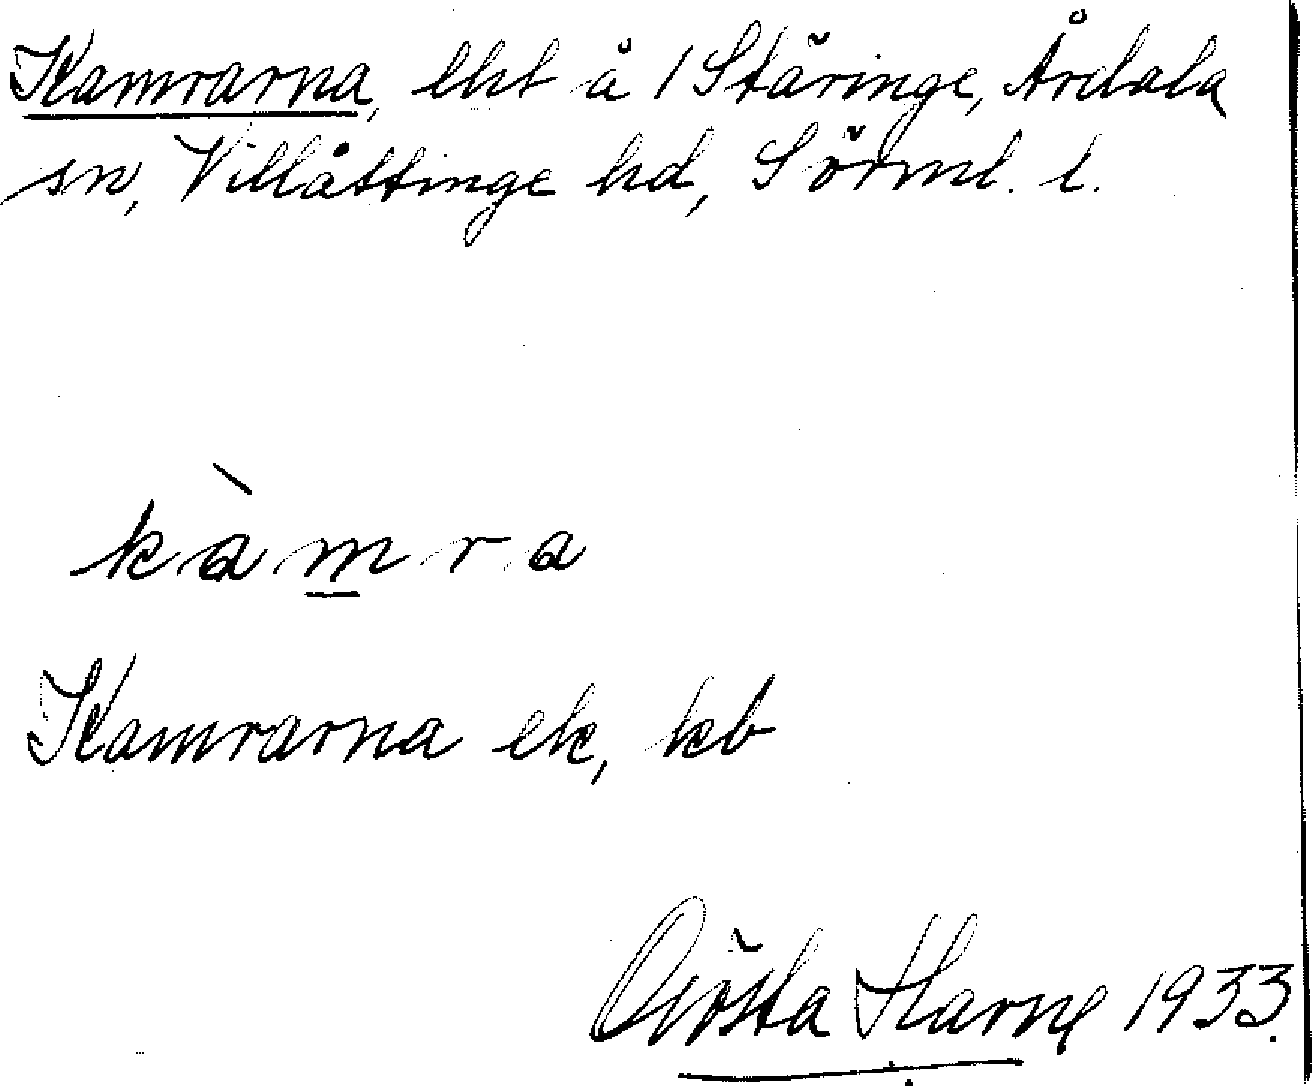 Kamrarna, lht å 1 Stäringe, Årdala
sn, Villåttinge hd, Sörml. l.
kàmra
Kamrarna ek, kb
Gösta Harne 1933.